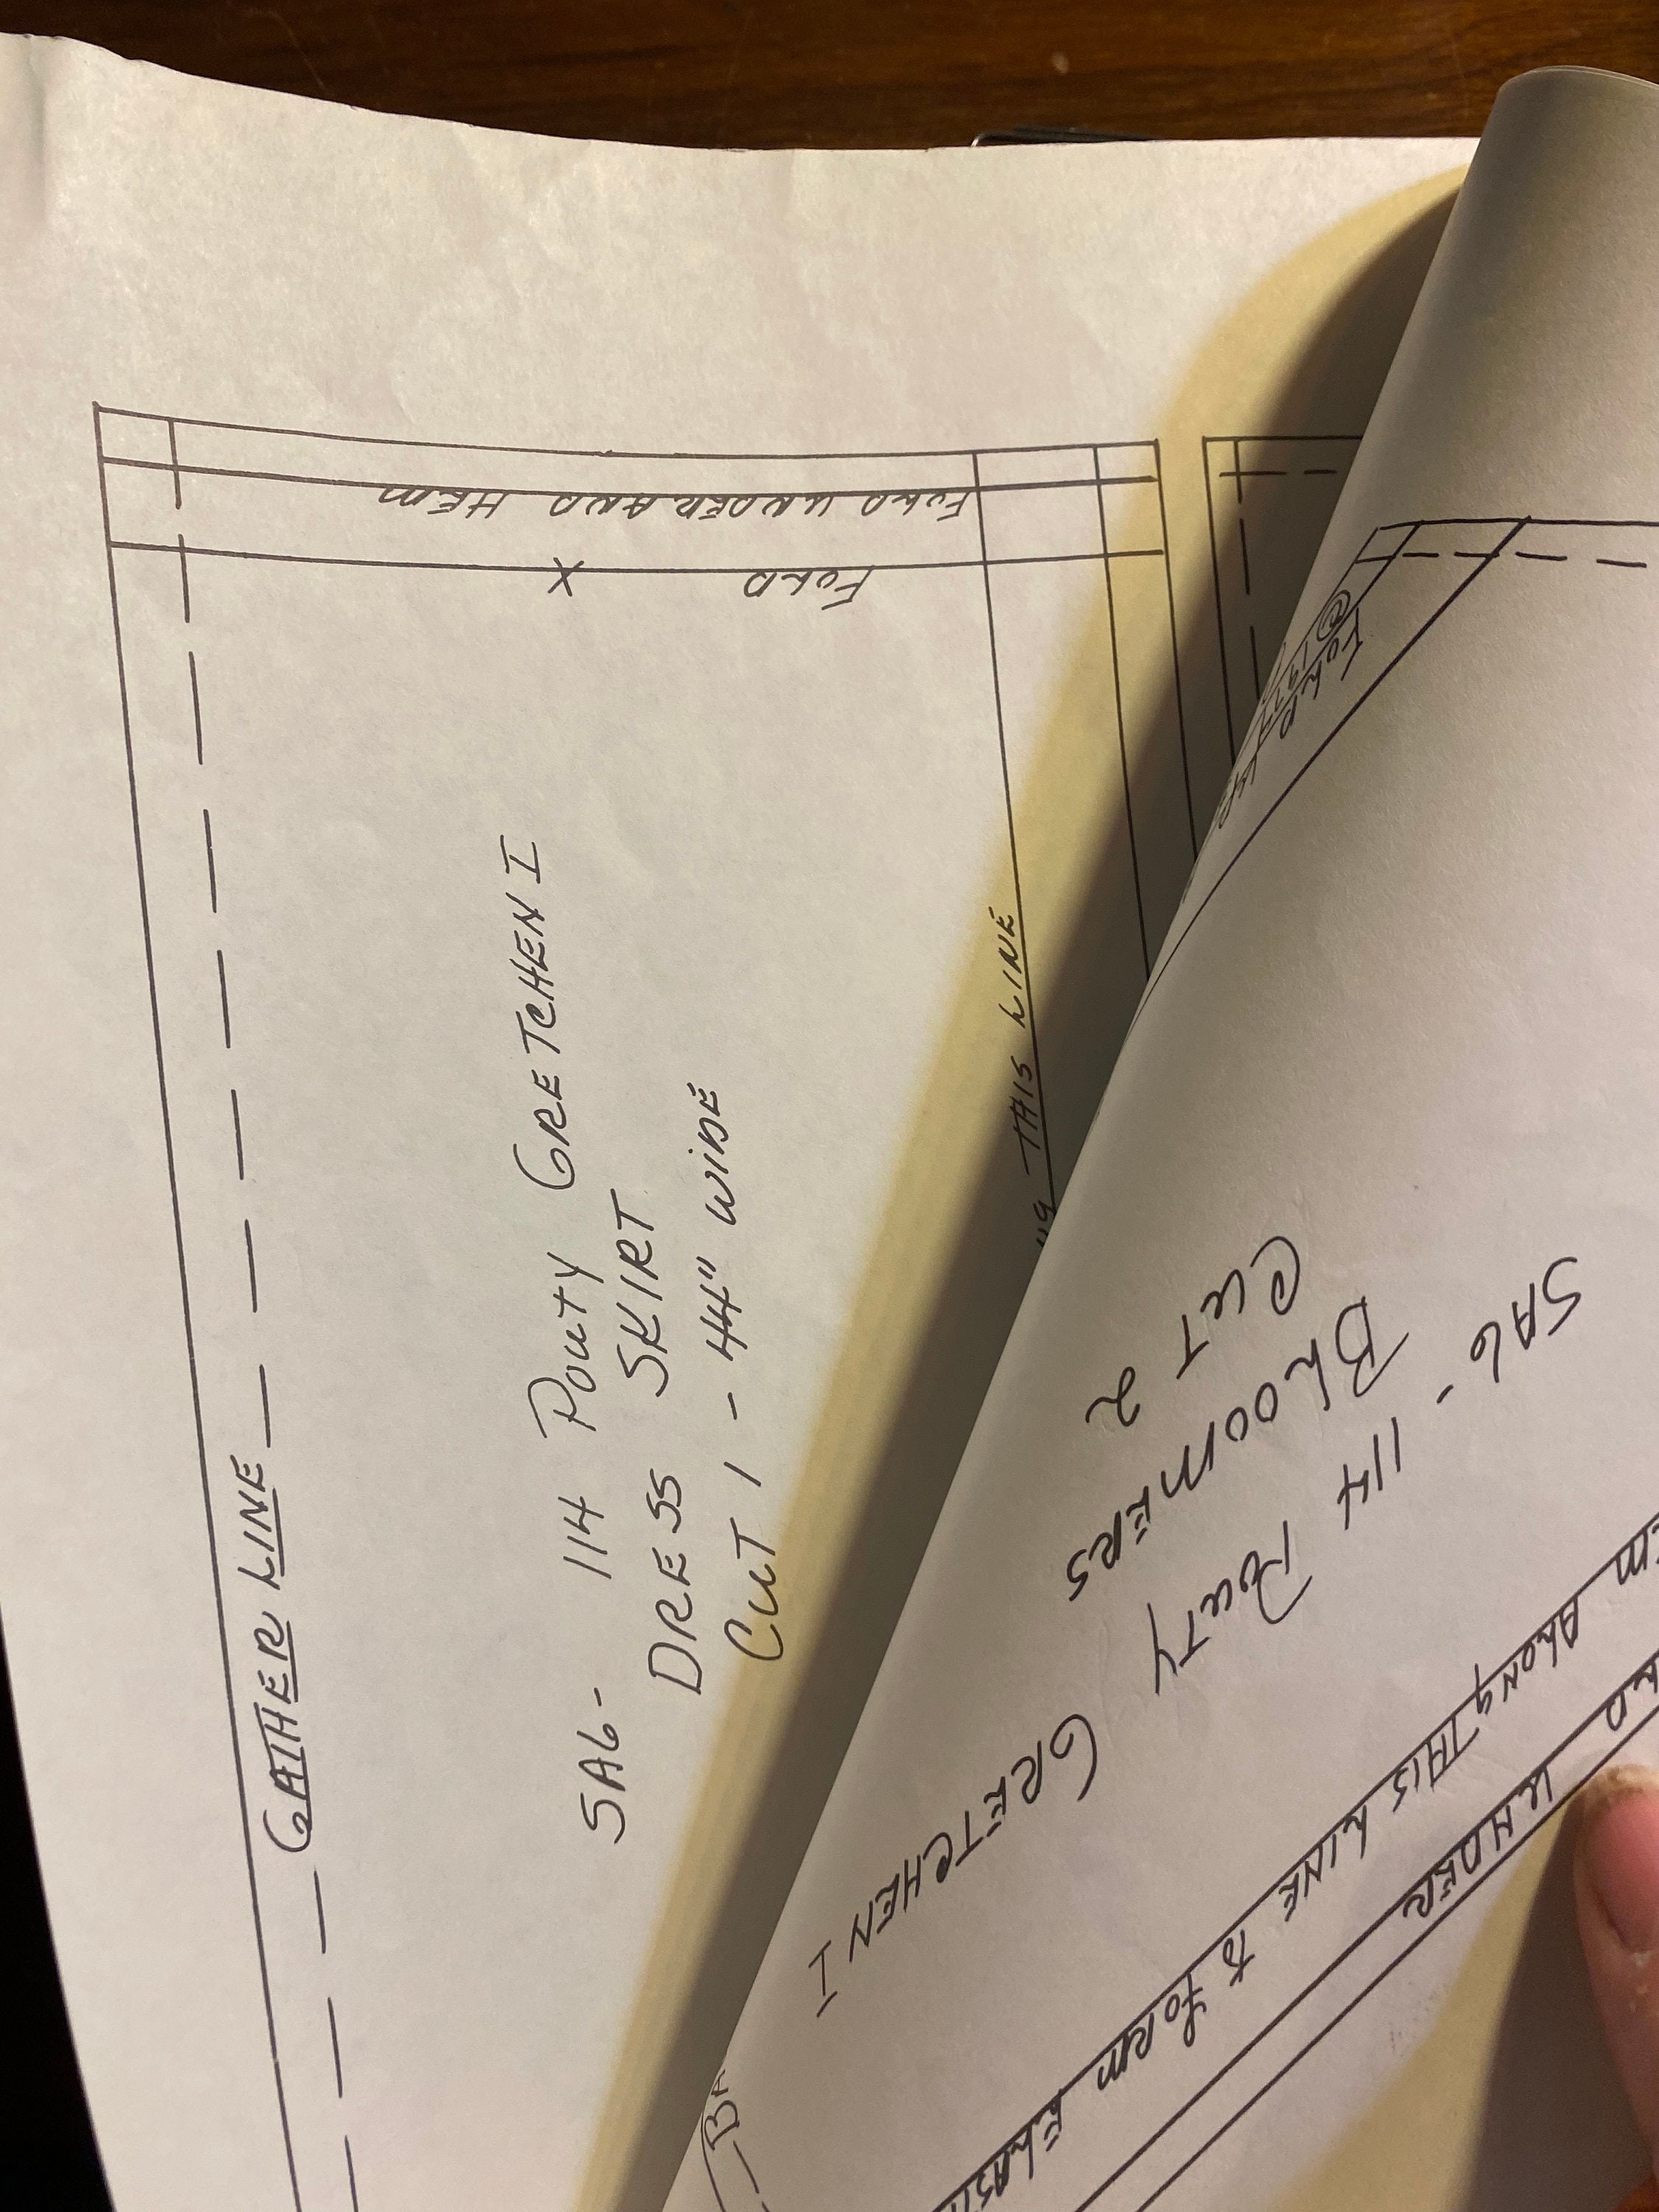 FOLD UNDER AND HEM
FOLD
X
GATHER LINE
SAG- 114 POUTY GRETCHEN I
DRESS SKIRT
CUT 1 - 44" WIDE
THIS LINE
FOLD
SAG- 114 POUTY GRETCHEN I
BLOOMERS
CUT 2
ALONG THIS LINE TO FORM
UNDER